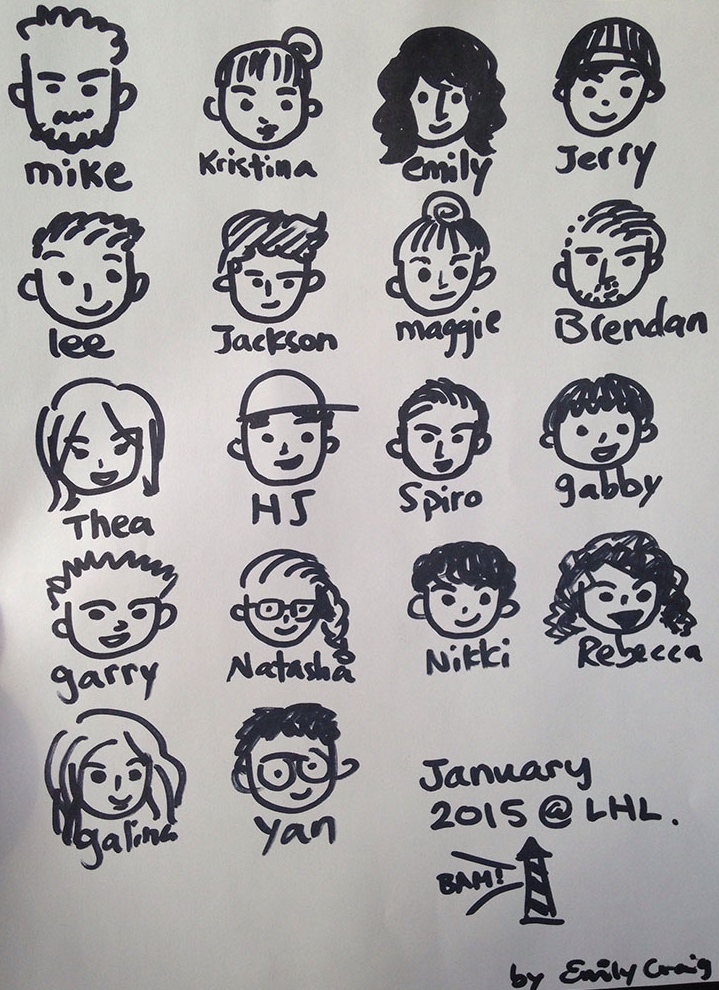 mike
Kristina
emily
Jerry
lee
Jackson
maggie
Brendan
Thea
HJ
Spiro
gabby
garry
Natasha
Nikki
Rebecca
galina
Yan
January
2015 @ LHL.
BAM!
by Emily Craig